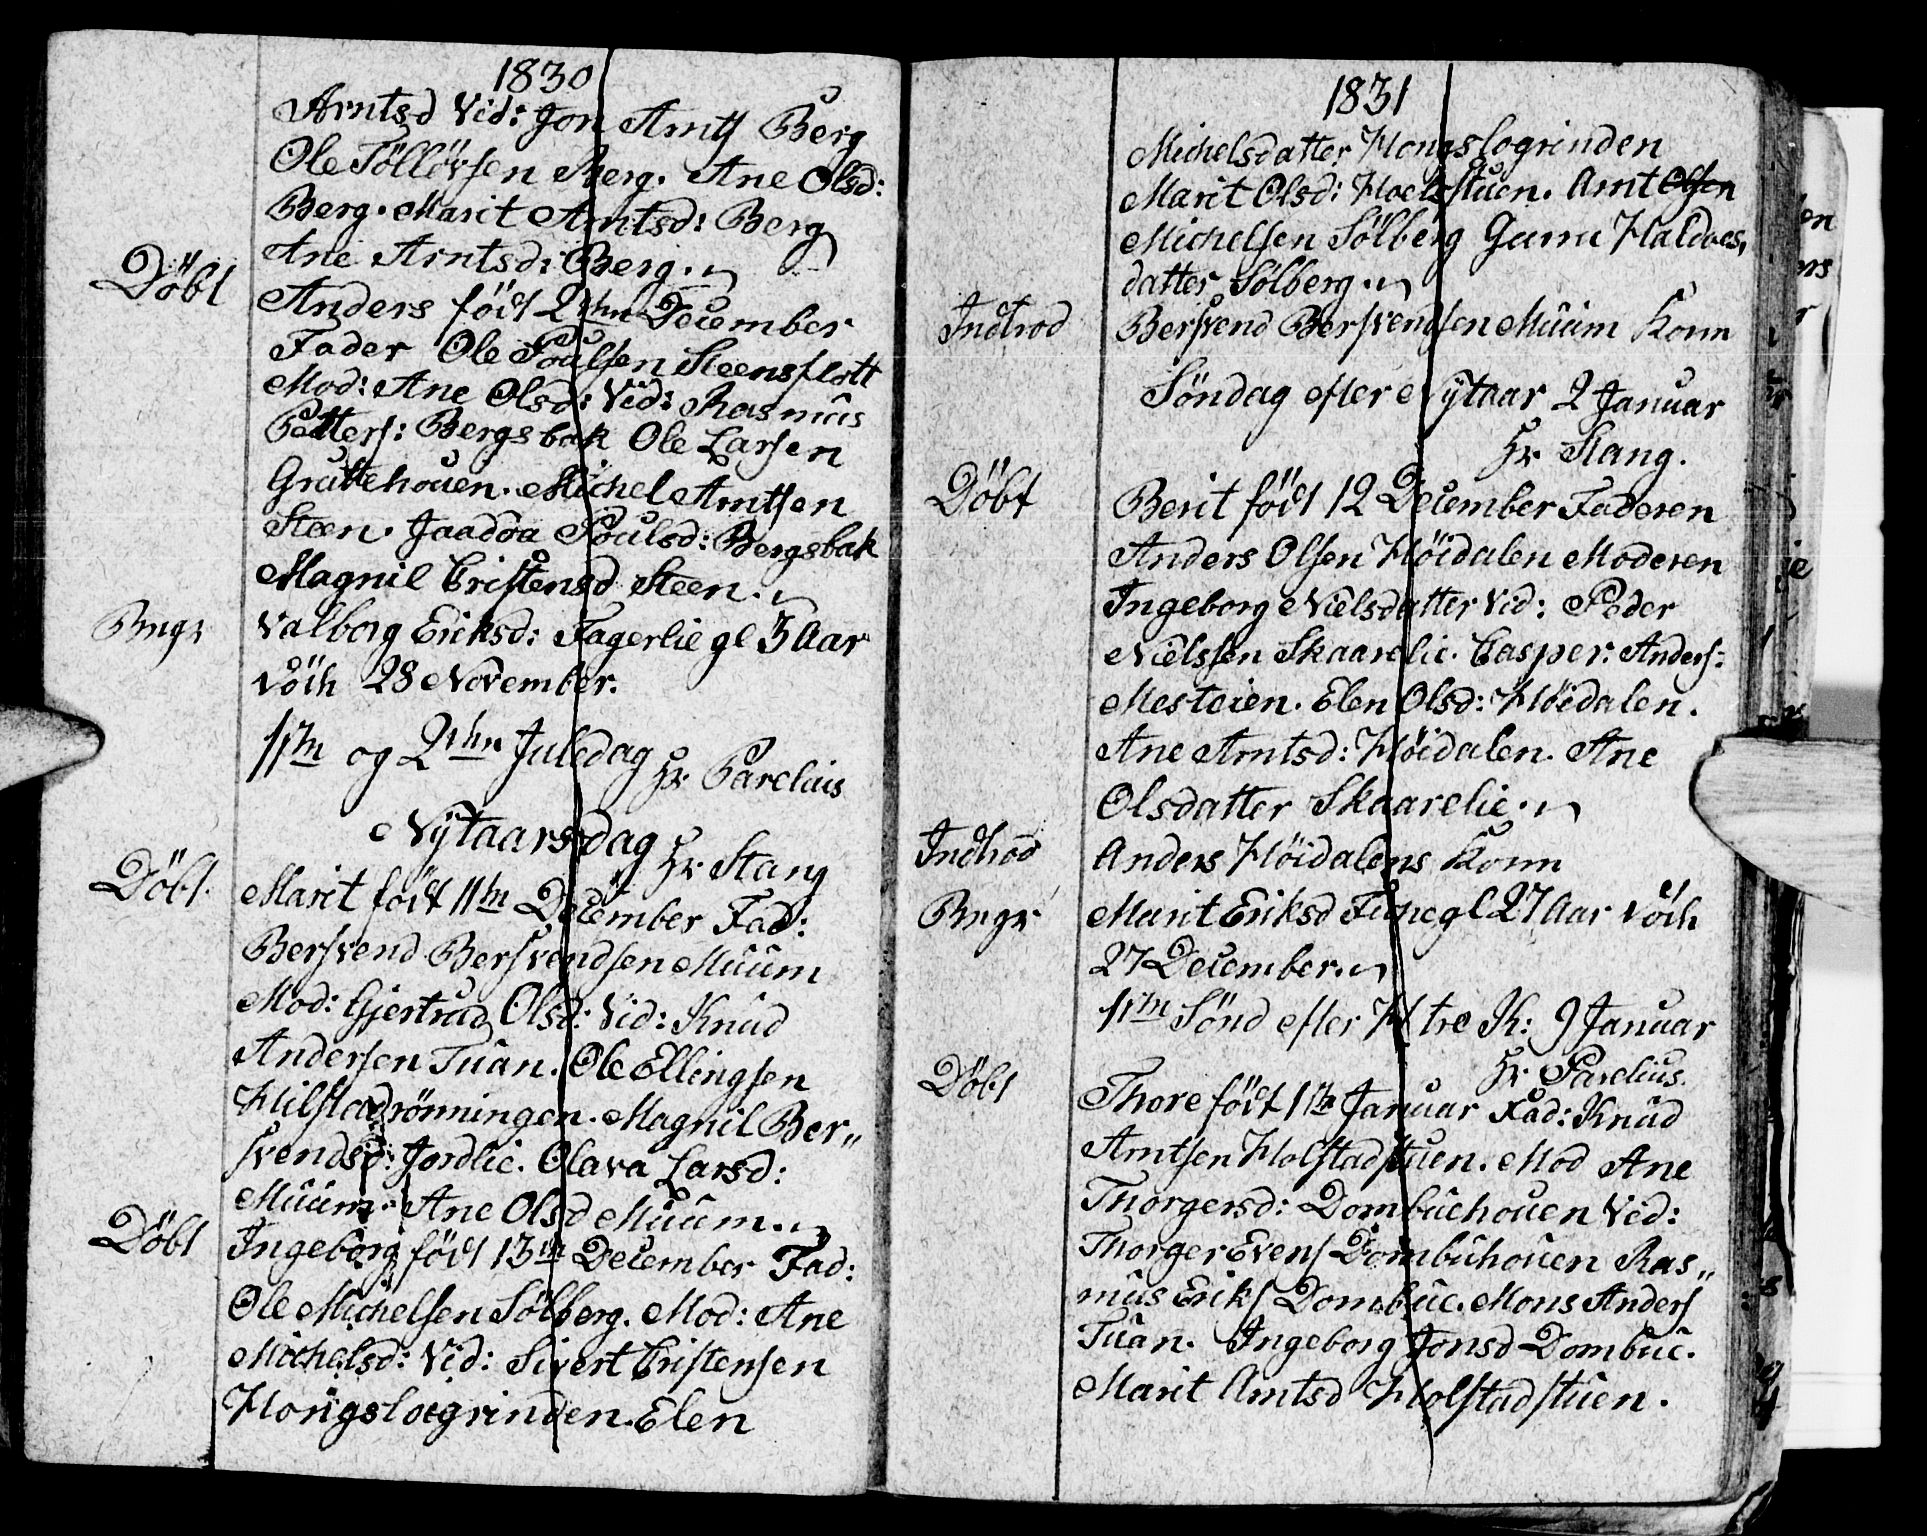 1830
Arntsd Vid: Jon Arntſ Berg
Ole Töllövsen Berg. Ane Olsd:
Berg. Marit Arntsd: Berg
Ane Arntsd: Berg.
Döbt Anders född 2den December
Fader Ole Poulsen Steensflott
Mod: Ane Olsd: Vid: Rasmus
Petters: Bergsbak Ole Larsen
Gruttehouen. Michel Arntsen
Steen. Jaadoa Poulsd: Bergsbak
Magnil Cristensd Steen.
Bmgr Valborg Eriksd: Fagerlie gl 3 Aar
död 28 November.
1ste og 2den Juledag Hr Parelius
Nÿtaarsdag Hr Stang
Döbt. Marit född 11te December Fad:
Bersvend Bersvendsen Muum
Mod: Gjertrud Olsd: Vid: Knud
Andersen Tuan. Ole Ellingsen
Hilstadrönningen. Magnil Ber„
svendsd: Jordlie. Olava Larsd:
Muum. Ane Olsd Muum.
Döbt Ingeborg född 13de December Fad:
Ole Michelsen Sölberg. Mod: Ane
Michelsd: Vid: Sivert Cristensen
Hongsloegrinden. Elen
1831
Michelsdatter Hongslogrinden
Marit Olsd: Hoelsstuen. Arnt Olsen
Michelsen Sölberg Guru Haldoes,
datter Sölberg.
Indtrod Bersvend Bersvendsen Muum Konn
Söndag efter Nÿtaar 2 Januar
Hr Stang.
Döbt Berit född 12 December Faderen
Anders Olsen Höidalen Moderen
Ingeborg Nielsdatter Vid: Peder
Nielssen Skaarelie. Casper: Anders:
Mesteien. Elen Olsd: Höidalen.
Ane Arntsd: Höidalen. Ane
Olsdatter Skaarelie.
Indtrod Anders Höidalens Konn
Bmgr Marit Eriksd Fune gl 27 Aar död
27 December.
1ste Sönd efter H tre K: 9 Januar
Hr Parelius.
Döbt Thore född 1ste Januar Fad: Knud
Arntsen Holstadstuen. Mod Ane
Thorgersd: Dombuehouen Vid:
Thorger Evens Dombuhouen Ras„
mus Eriks Dombue. Mons Anders
Tuan. Ingeborg Jonsd Dombue.
Marit Arntsd Holstadstuen.